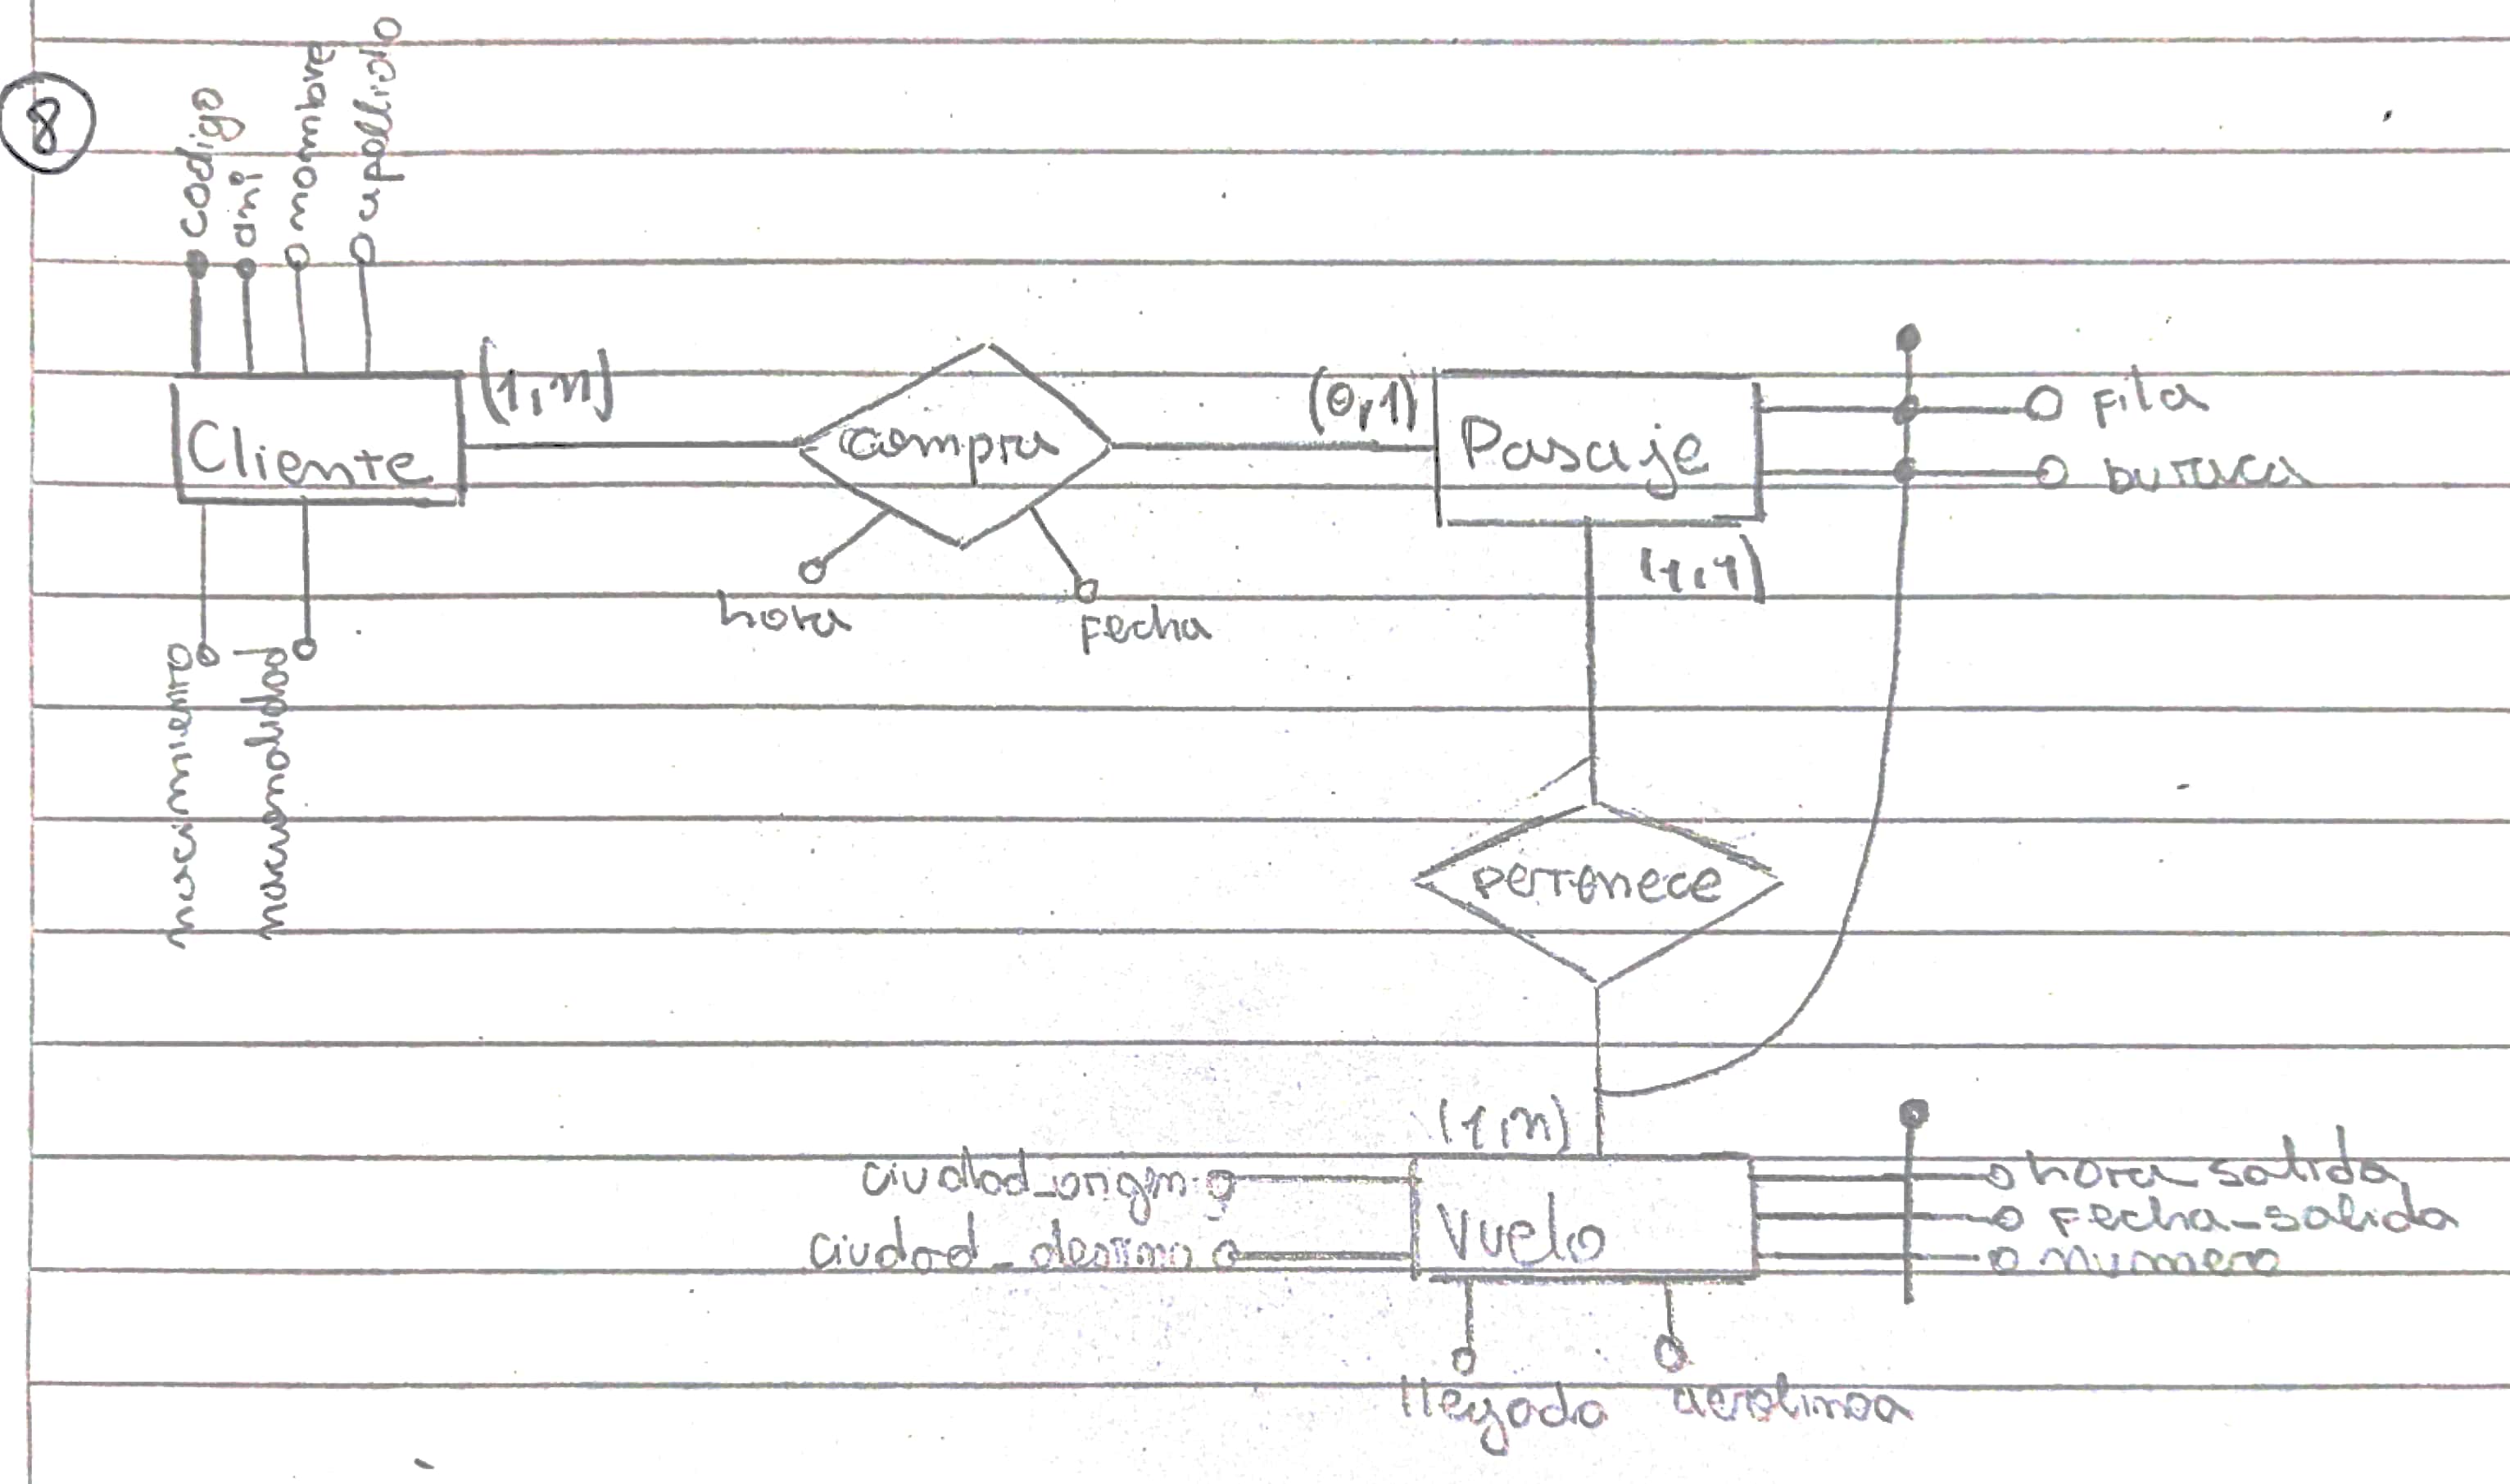 8
codigo
dni
nombre
apellido
Cliente
(1,n)
compra
(0,1)
Pasaje
fila
butaca
(1,1)
hora
fecha
nacimiento
nacionalidad
pertenece
(1,n)
ciudad_origen
ciudad_destino
Vuelo
hora_salida
fecha_salida
numero
llegada
aerolinea